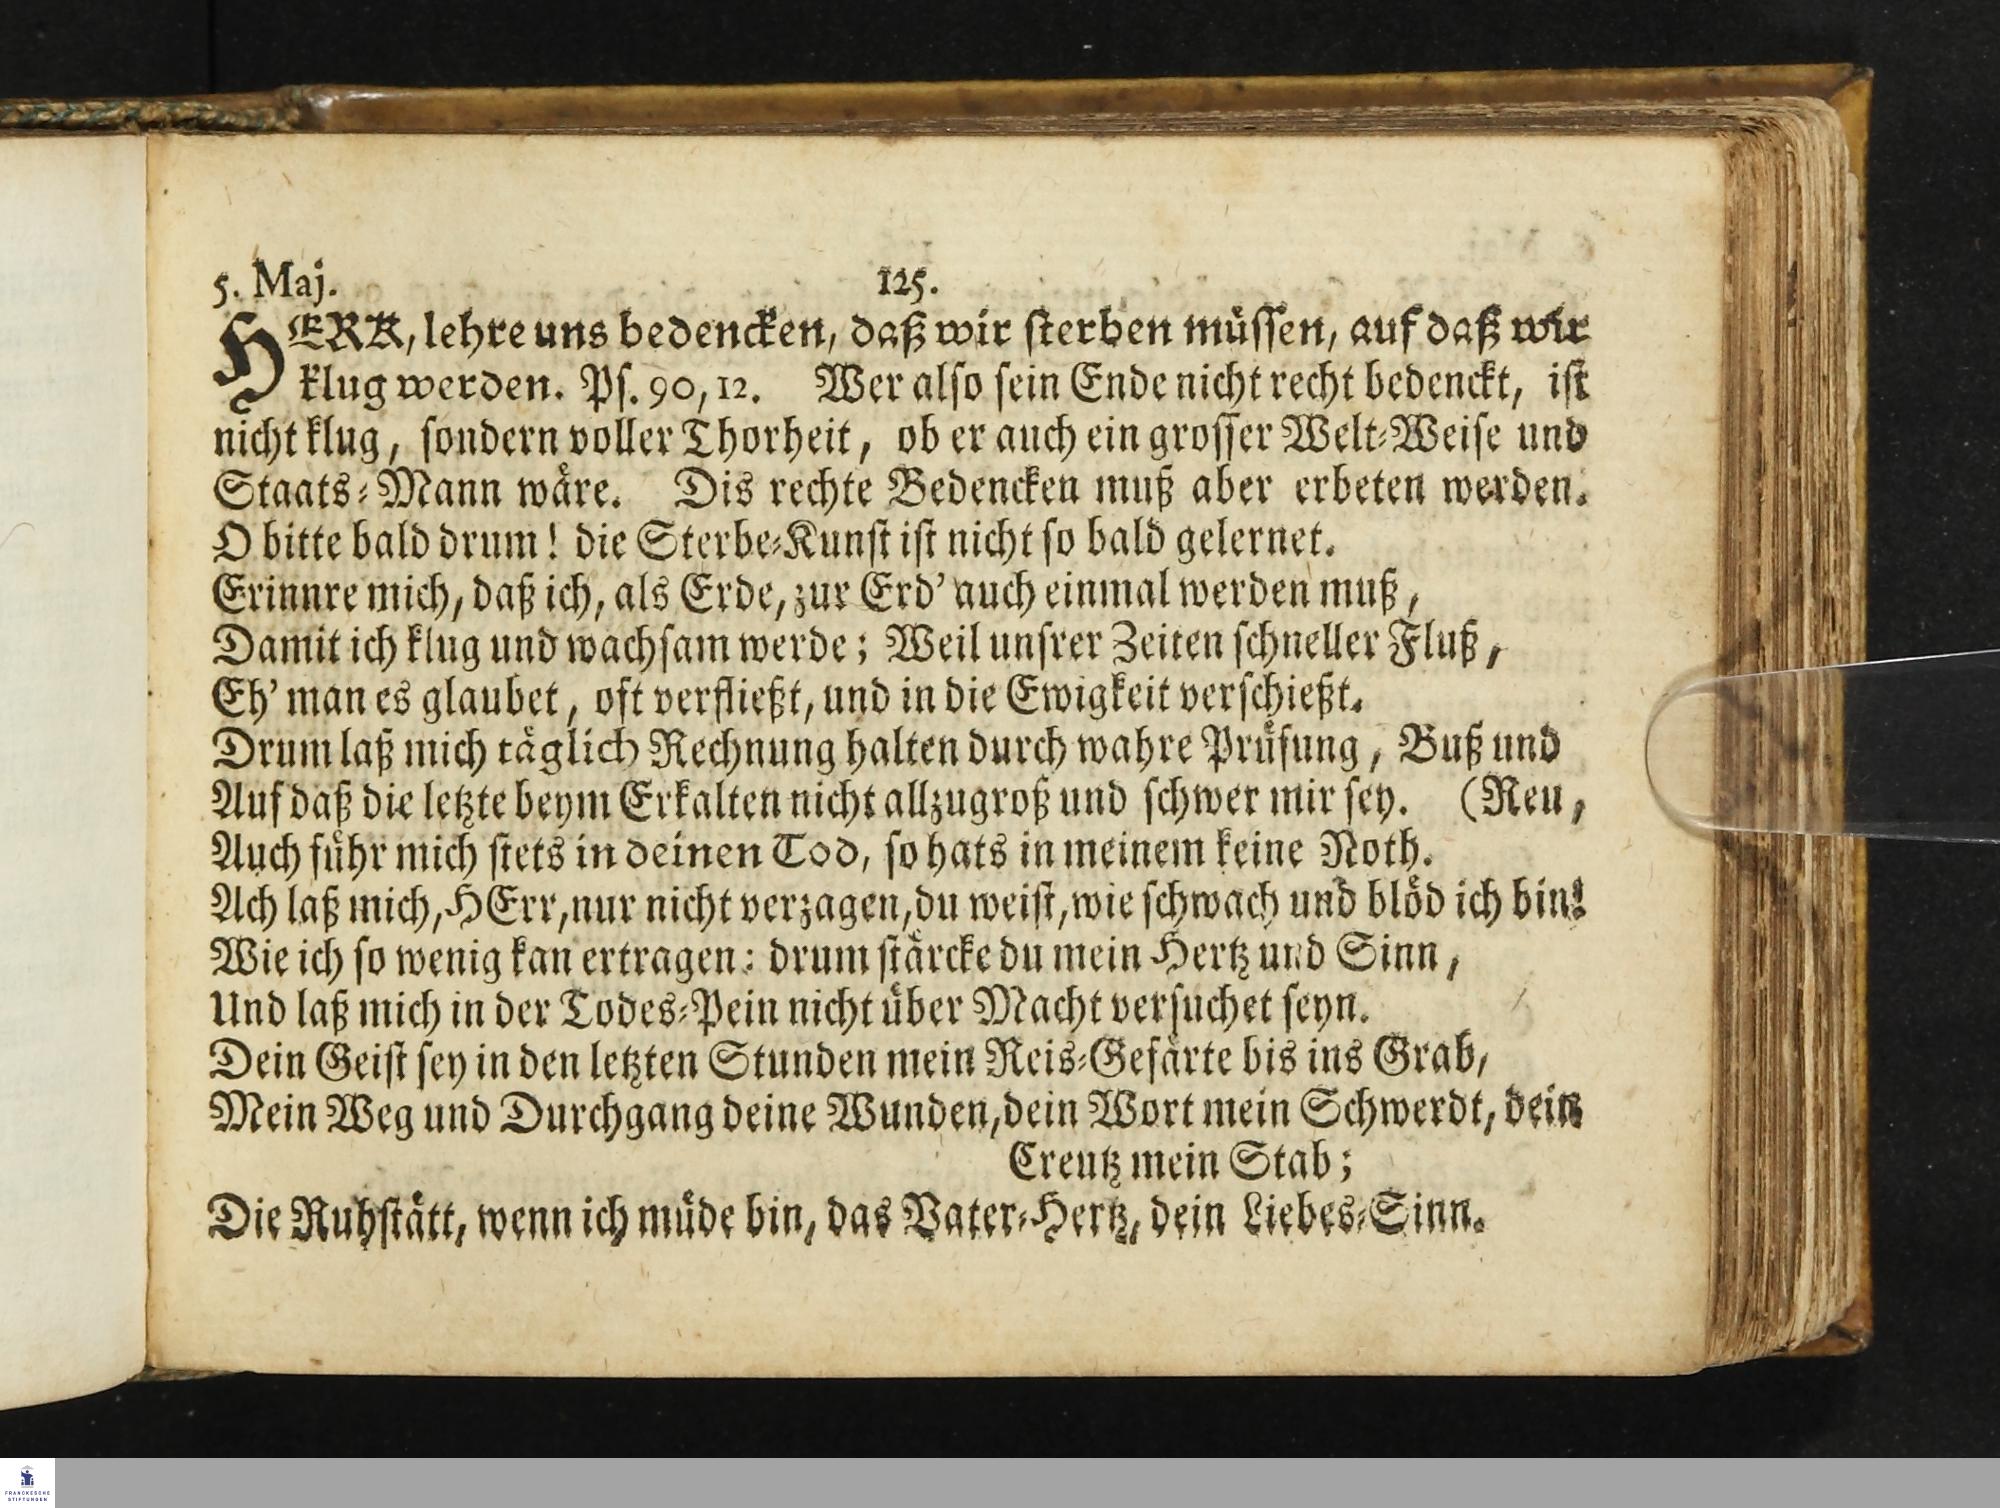 5. Maj. 125.
HERR, lehre uns bedencken, daß wir sterben müssen, auf daß wir
klug werden. Ps. 90, 12. Wer also sein Ende nicht recht bedenckt, ist
nicht klug, sondern voller Thorheit, ob er auch ein grosser Welt-Weise und
Staats-Mann wäre. Dis rechte Bedencken muß aber erbeten werden.
O bitte bald drum! die Sterbe-Kunst ist nicht so bald gelernet.
Erinnre mich, daß ich, als Erde, zur Erd' auch einmal werden muß,
Damit ich klug und wachsam werde; Weil unsrer Zeiten schneller Fluß,
Eh' man es glaubet, oft verfließt, und in die Ewigkeit verschießt.
Drum laß mich täglich Rechnung halten durch wahre Prüfung, Buß und
Auf daß die letzte beym Erkalten nicht allzugroß und schwer mir sey. (Reu,
Auch führ mich stets in deinen Tod, so hats in meinem keine Noth.
Ach laß mich, HErr, nur nicht verzagen, du weist, wie schwach und blöd ich bin!
Wie ich so wenig kan ertragen: drum stärcke du mein Hertz und Sinn,
Und laß mich in der Todes-Pein nicht über Macht versuchet seyn.
Dein Geist sey in den letzten Stunden mein Reis-Gefärte bis ins Grab,
Mein Weg und Durchgang deine Wunden, dein Wort mein Schwerdt, dein
Creutz mein Stab;
Die Ruhstätt, wenn ich müde bin, das Vater-Hertz, dein Liebes-Sinn.
FRANCKESCHE
STIFTUNGEN